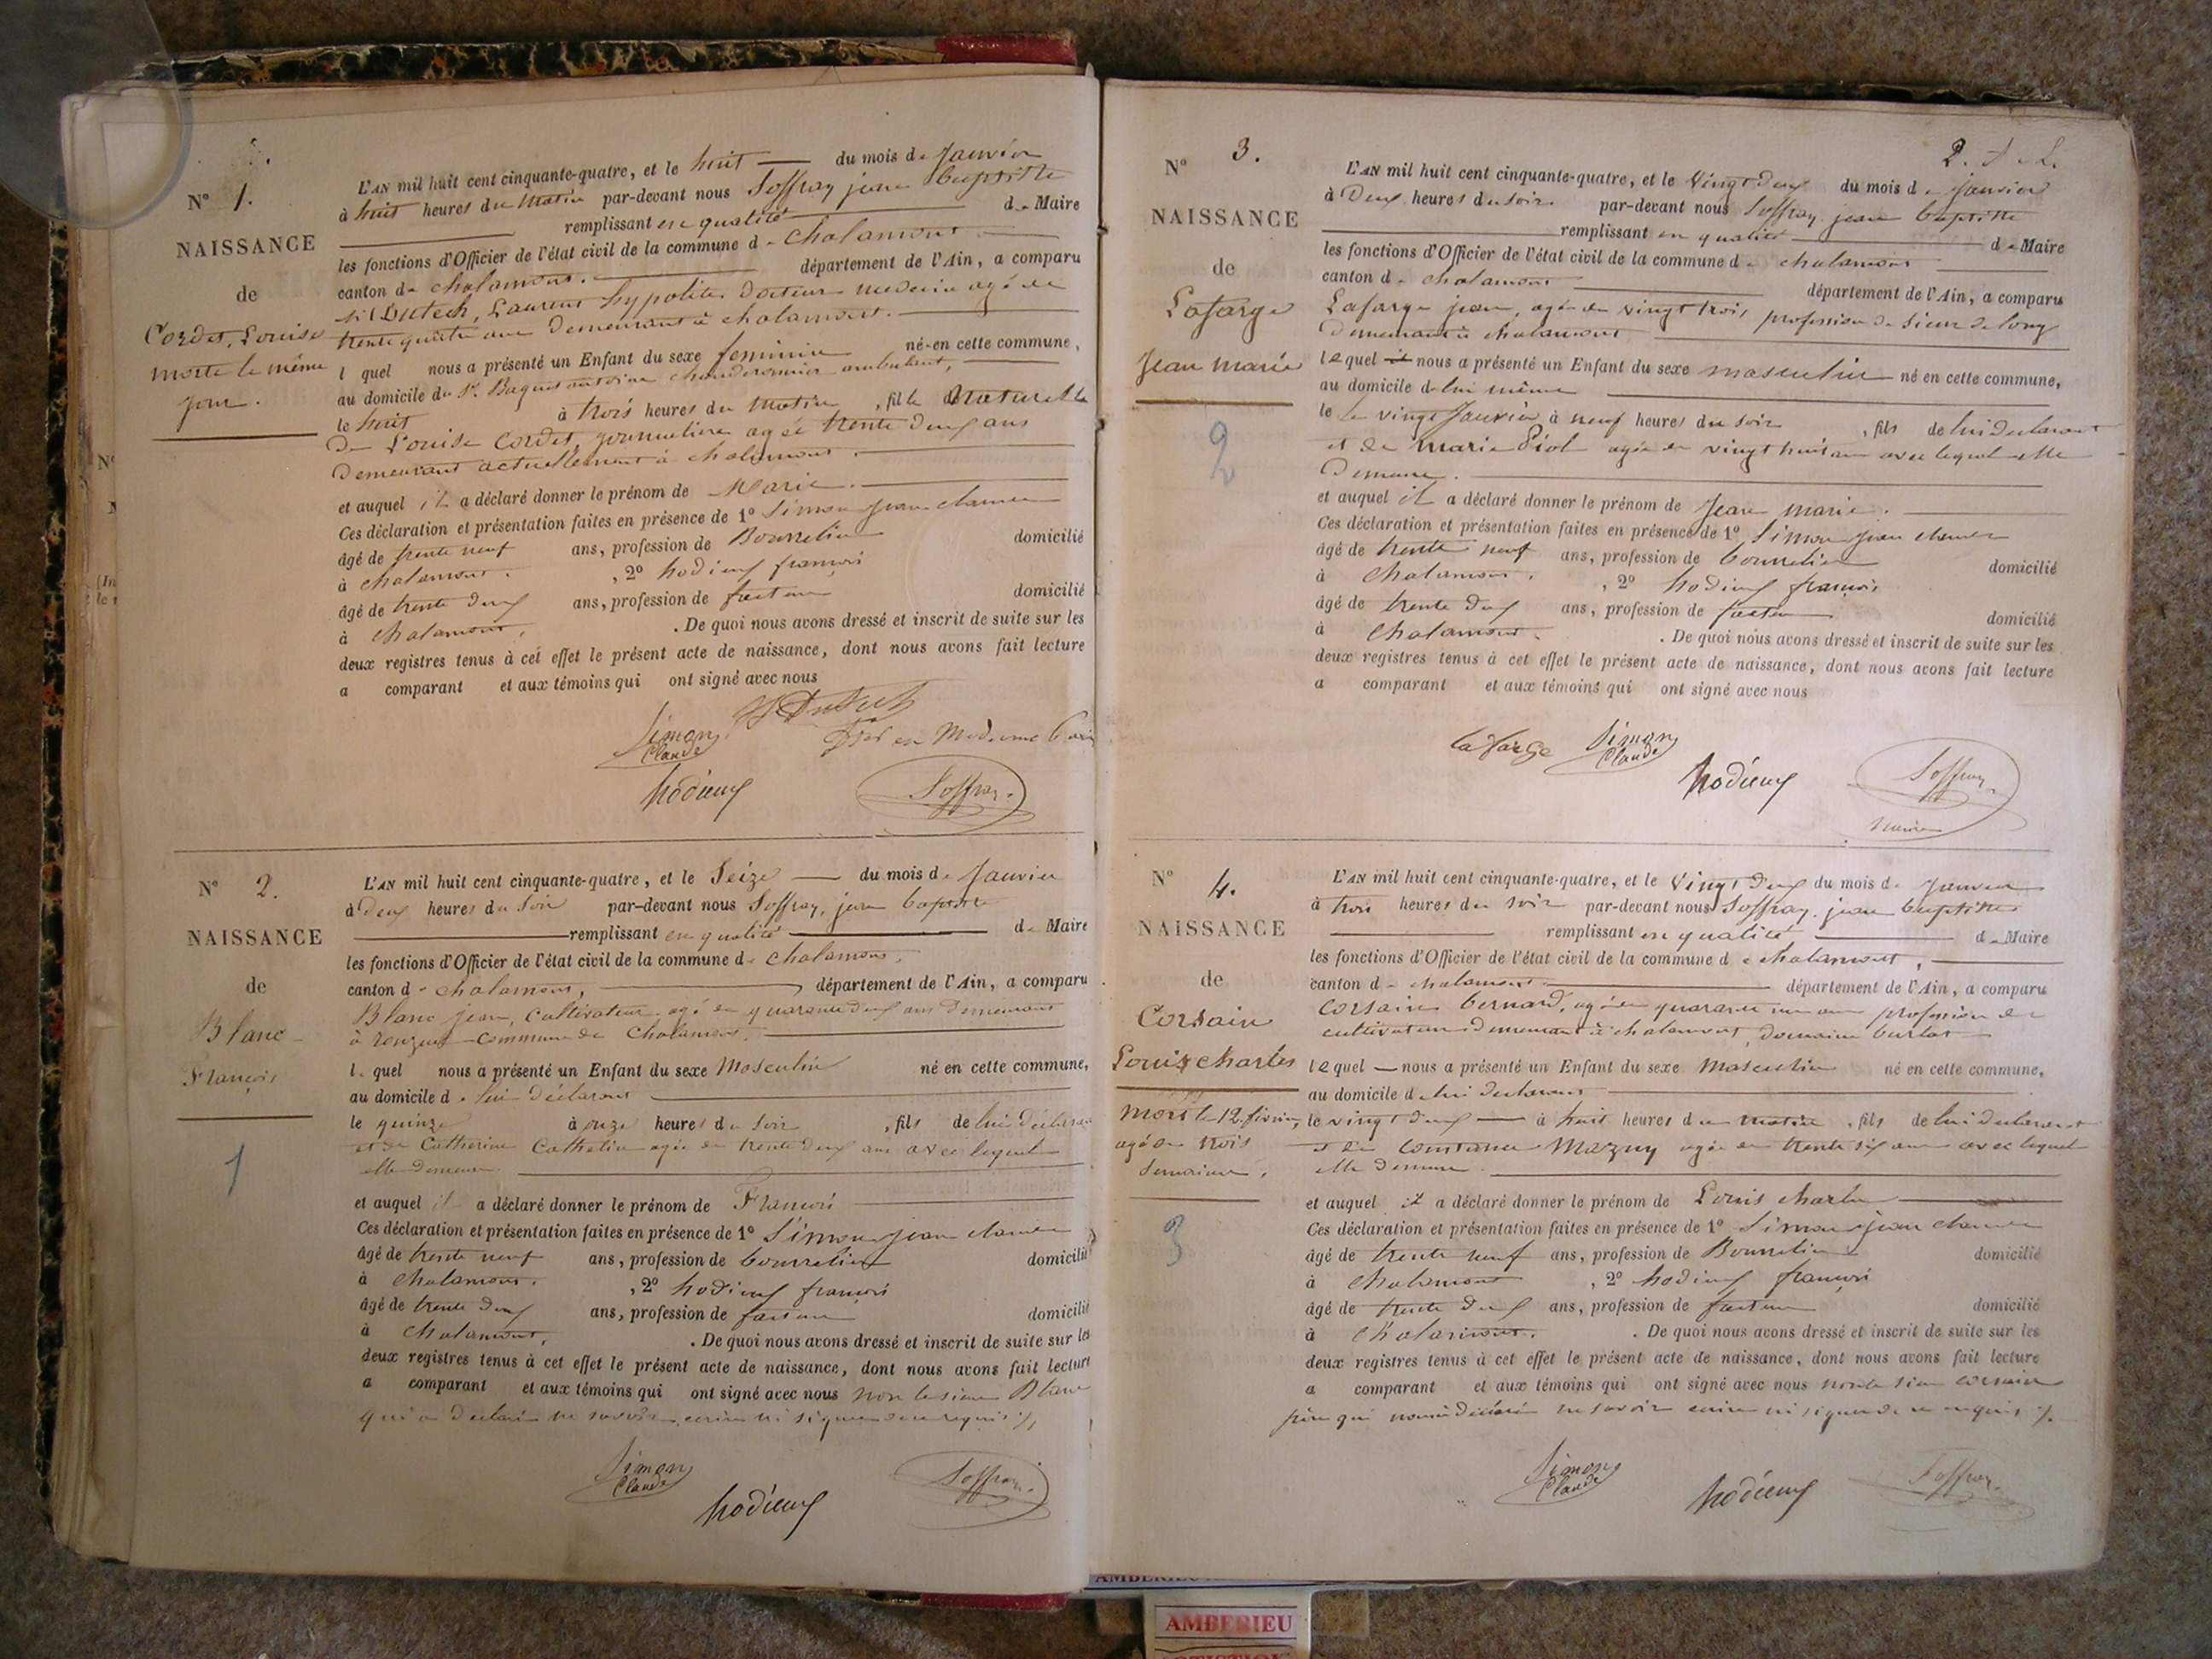 N° 1.
NAISSANCE
de
Cordet, Louise
morte le même
jour.
L'AN mil huit cent cinquante-quatre, et le huit du mois de Janvier
à huit heures du matin par-devant nous Soffray jean baptiste
remplissant en qualité de Maire
les fonctions d'Officier de l'état civil de la commune de Chalamont
canton de Chalamont. département de l'Ain, a comparu
Dutech, Laurent hypolite docteur médecin agé de
trente quatre ans demeurant à chalamont.
l quel nous a présenté un Enfant du sexe féminin né en cette commune,
au domicile du Sr. Baquet antoine chauderonnier ambulant,
le huit à trois heures du matin, fille Naturelle
De Louise Cordet, journalière agée trente deux ans
Demeurant actuellement à chalamont.
et auquel il a déclaré donner le prénom de Marie.
Ces déclaration et présentation faites en présence de 1° Simon jean claude
âgé de trente neuf ans, profession de Bourrelier domicilié
à chalamont. , 2° hodieux françois
âgé de trente deux ans, profession de facteur domicilié
à chalamont. . De quoi nous avons dressé et inscrit de suite sur les
deux registres tenus à cet effet le présent acte de naissance, dont nous avons fait lecture
a comparant et aux témoins qui ont signé avec nous
Dutech
Simon Claude
en Medecine
hodieux
Soffray
N° 2.
NAISSANCE
de
Blanc
François
1
L'AN mil huit cent cinquante-quatre, et le Seize du mois de Janvier
à deux heures du Soir par-devant nous Soffray, jean baptiste
remplissant en qualité de Maire
les fonctions d'Officier de l'état civil de la commune de Chalamont.
canton de chalamont, département de l'Ain, a comparu
Blanc jean, cultivateur agé de quarante deux ans demeurant
à commune de Chalamont.
le quel nous a présenté un Enfant du sexe Masculin né en cette commune,
au domicile de lui déclarant
le quinze à onze heures du Soir, fils de lui déclarant
et de Catherine Cathelin agée de trente deux ans avec lequel
elle demeure
et auquel il a déclaré donner le prénom de François
Ces déclaration et présentation faites en présence de 1° Simon jean claude
âgé de trente neuf ans, profession de bourrelier domicilié
à chalamont. , 2° hodieux françois
âgé de trente deux ans, profession de facteur domicilié
à Chalamont. . De quoi nous avons dressé et inscrit de suite sur les
deux registres tenus à cet effet le présent acte de naissance, dont nous avons fait lecture
a comparant et aux témoins qui ont signé avec nous non le sieur Blanc
qui a déclaré ne savoir écrire ni signer de ce requis
Simon Claude
hodieux
Soffray
2.
N° 3.
NAISSANCE
de
Lafarge
Jean marie
2
L'AN mil huit cent cinquante-quatre, et le vingt deux du mois de janvier
à Deux heures du soir par-devant nous Soffray jean baptiste
remplissant en qualité de Maire
les fonctions d'Officier de l'état civil de la commune de chalamont
canton de chalamont département de l'Ain, a comparu
Lafarge jean, agé de vingt trois profession de sieur de long
Demeurant à chalamont
le quel nous a présenté un Enfant du sexe masculin né en cette commune,
au domicile de lui même
le vingt Janvier à neuf heures du soir, fils de lui déclarant
et de marie Piol agée de vingt huit ans avec lequel elle
Demeure.
et auquel il a déclaré donner le prénom de Jean marie.
Ces déclaration et présentation faites en présence de 1° Simon jean claude
âgé de trente neuf ans, profession de bourrelier domicilié
à Chalamont. , 2° hodieux françois
âgé de trente deux ans, profession de facteur domicilié
à Chalamont. . De quoi nous avons dressé et inscrit de suite sur les
deux registres tenus à cet effet le présent acte de naissance, dont nous avons fait lecture
a comparant et aux témoins qui ont signé avec nous
lafarge
Simon Claude
hodieux
Soffray
maire
N° 4.
NAISSANCE
de
Corsain
Louis charles
mort le 12 février
agé de trois
semaines.
3
L'AN mil huit cent cinquante-quatre, et le vingt deux du mois de janvier
à trois heures du soir par-devant nous Soffray jean baptiste
remplissant en qualité de Maire
les fonctions d'Officier de l'état civil de la commune de chalamont,
canton de chalamont département de l'Ain, a comparu
Corsain bernard, agé de quarante un ans profession de
cultivateur demeurant à chalamont, domaine burlat
lequel nous a présenté un Enfant du sexe Masculin né en cette commune,
au domicile de lui déclarant
le vingt deux à huit heures du matin, fils de lui déclarant
et de constance Mazuy agée de trente six ans avec lequel
elle demeure
et auquel il a déclaré donner le prénom de Louis charles
Ces déclaration et présentation faites en présence de 1° Simon jean claude
âgé de trente neuf ans, profession de Bourrelier domicilié
à Chalamont , 2° hodieux françois
âgé de trente deux ans, profession de facteur domicilié
à Chalamont. . De quoi nous avons dressé et inscrit de suite sur les
deux registres tenus à cet effet le présent acte de naissance, dont nous avons fait lecture
a comparant et aux témoins qui ont signé avec nous non le sieur corsain
père qui nous a déclaré ne savoir écrire ni signer de ce requis
Simon Claude
hodieux
Soffray
AMBERIEU